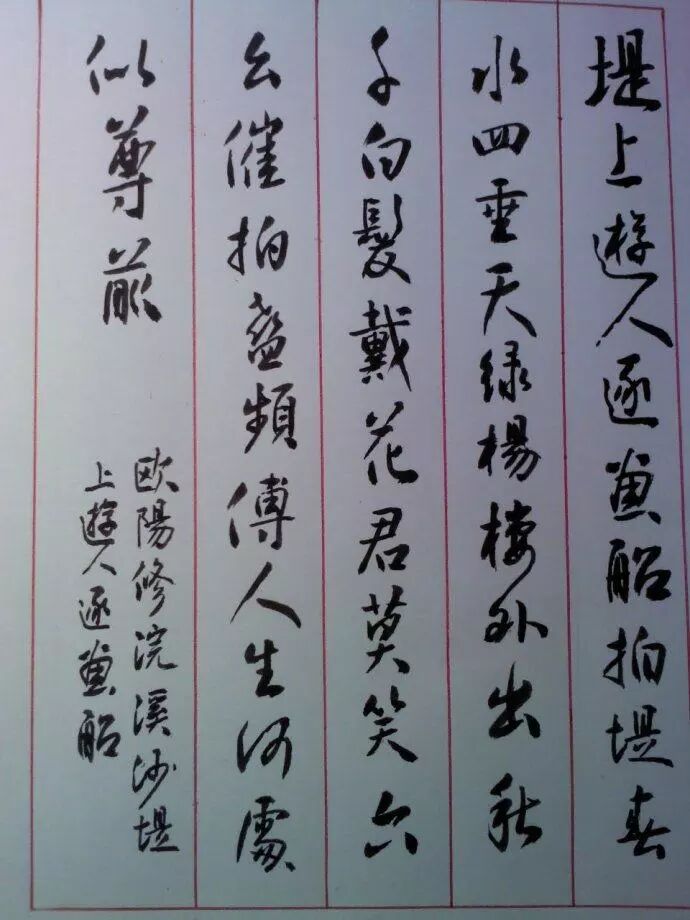 堤上遊人逐畫船拍堤春
水四垂天緑楊樓外出秋
千白髮戴花君莫笑六
幺催拍盞頻傳人生何處
似尊前
欧陽修浣溪沙堤
上遊人逐畫船